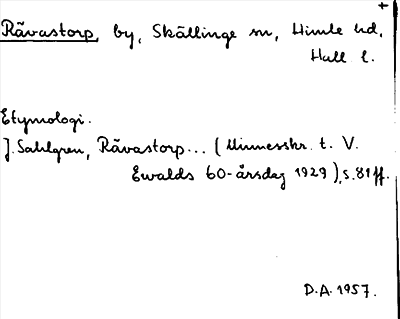 +
Rävastorp, by, Skällinge sn, Himle hd,
Hall l.
Etymologi.
J. Sahlgren, Rävastorp... (Minnesskr. t. V.
Ewalds 60-årsdag 1929), s. 81 ff.
D.A. 1957.